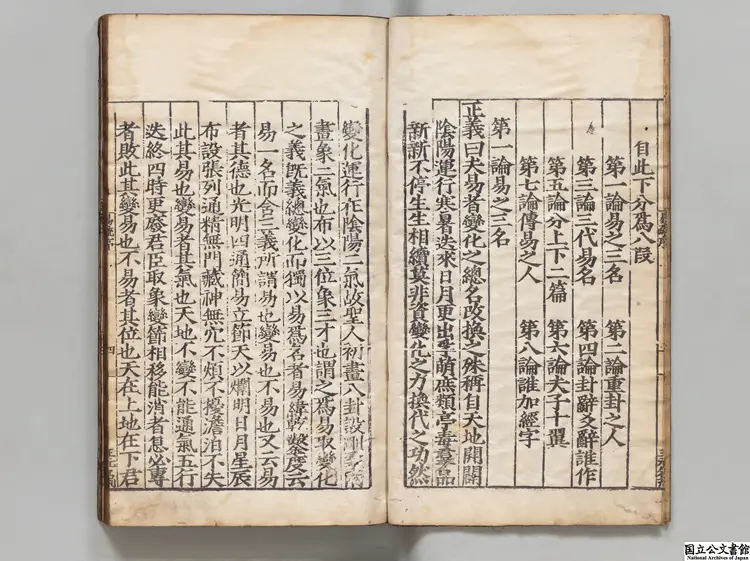 自此下分爲八段
第一論易之三名　第二論重卦之人
第三論三代易名　第四論卦辭爻辭誰作
第五論分上下二篇　第六論夫子十翼
第七論傳易之人　第八論誰加經字
第一論易之三名
正義曰夫易者變化之總名改換之殊稱自天地開闢
陰陽運行寒暑迭來日月更出孚萌庶類亭毒羣品
新新不停生生相續莫非資變化之力換代之功然
變化運行在陰陽二氣故聖人初畫八卦設剛柔兩
畫象二氣也布以三位象三才也謂之爲易取變化
之義旣義總變化而獨以易爲名者易緯乾鑿度云
易一名而含三義所謂易也變易也不易也又云易
者其德也光明四通簡易立節天以爛明日月星辰
布設張列通精無門藏神無穴不煩不擾澹泊不失
此其易也變易者其氣也天地不變不能通氣五行
迭終四時更廢君臣取象變節相移能消者息必專
者敗此其變易也不易者其位也天在上地在下君
国立公文書館
National Archives of Japan